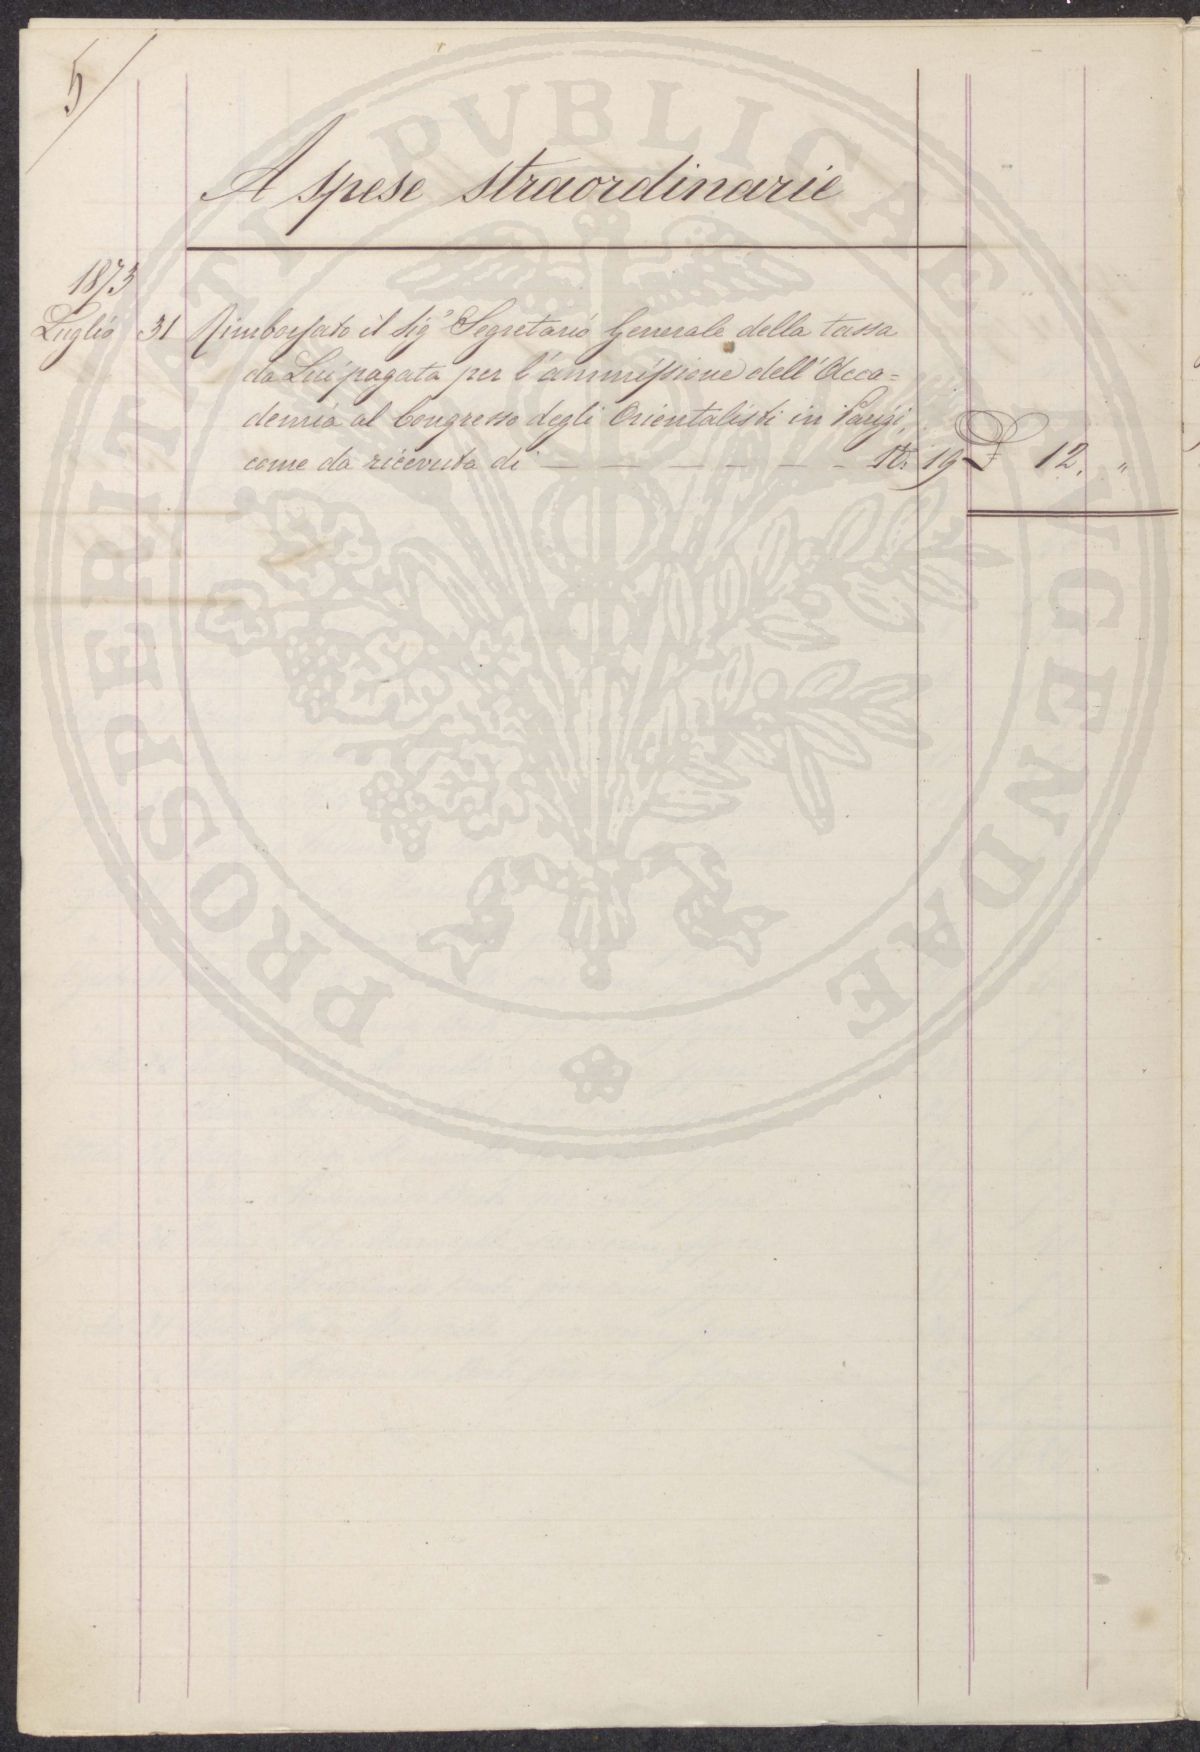 5/
A spese straordinarie
1873
Luglio 31 Rimborsato il Sig.r Segretario Generale della tassa
da Lui pagata per l'ammissione dell'Acca=
demia al Congresso degli Orientalisti in Parigi,
come da ricevuta di — — — — — — — N: 19 £ 12. "
PROSPERITATI PVBLICAE AVGENDAE